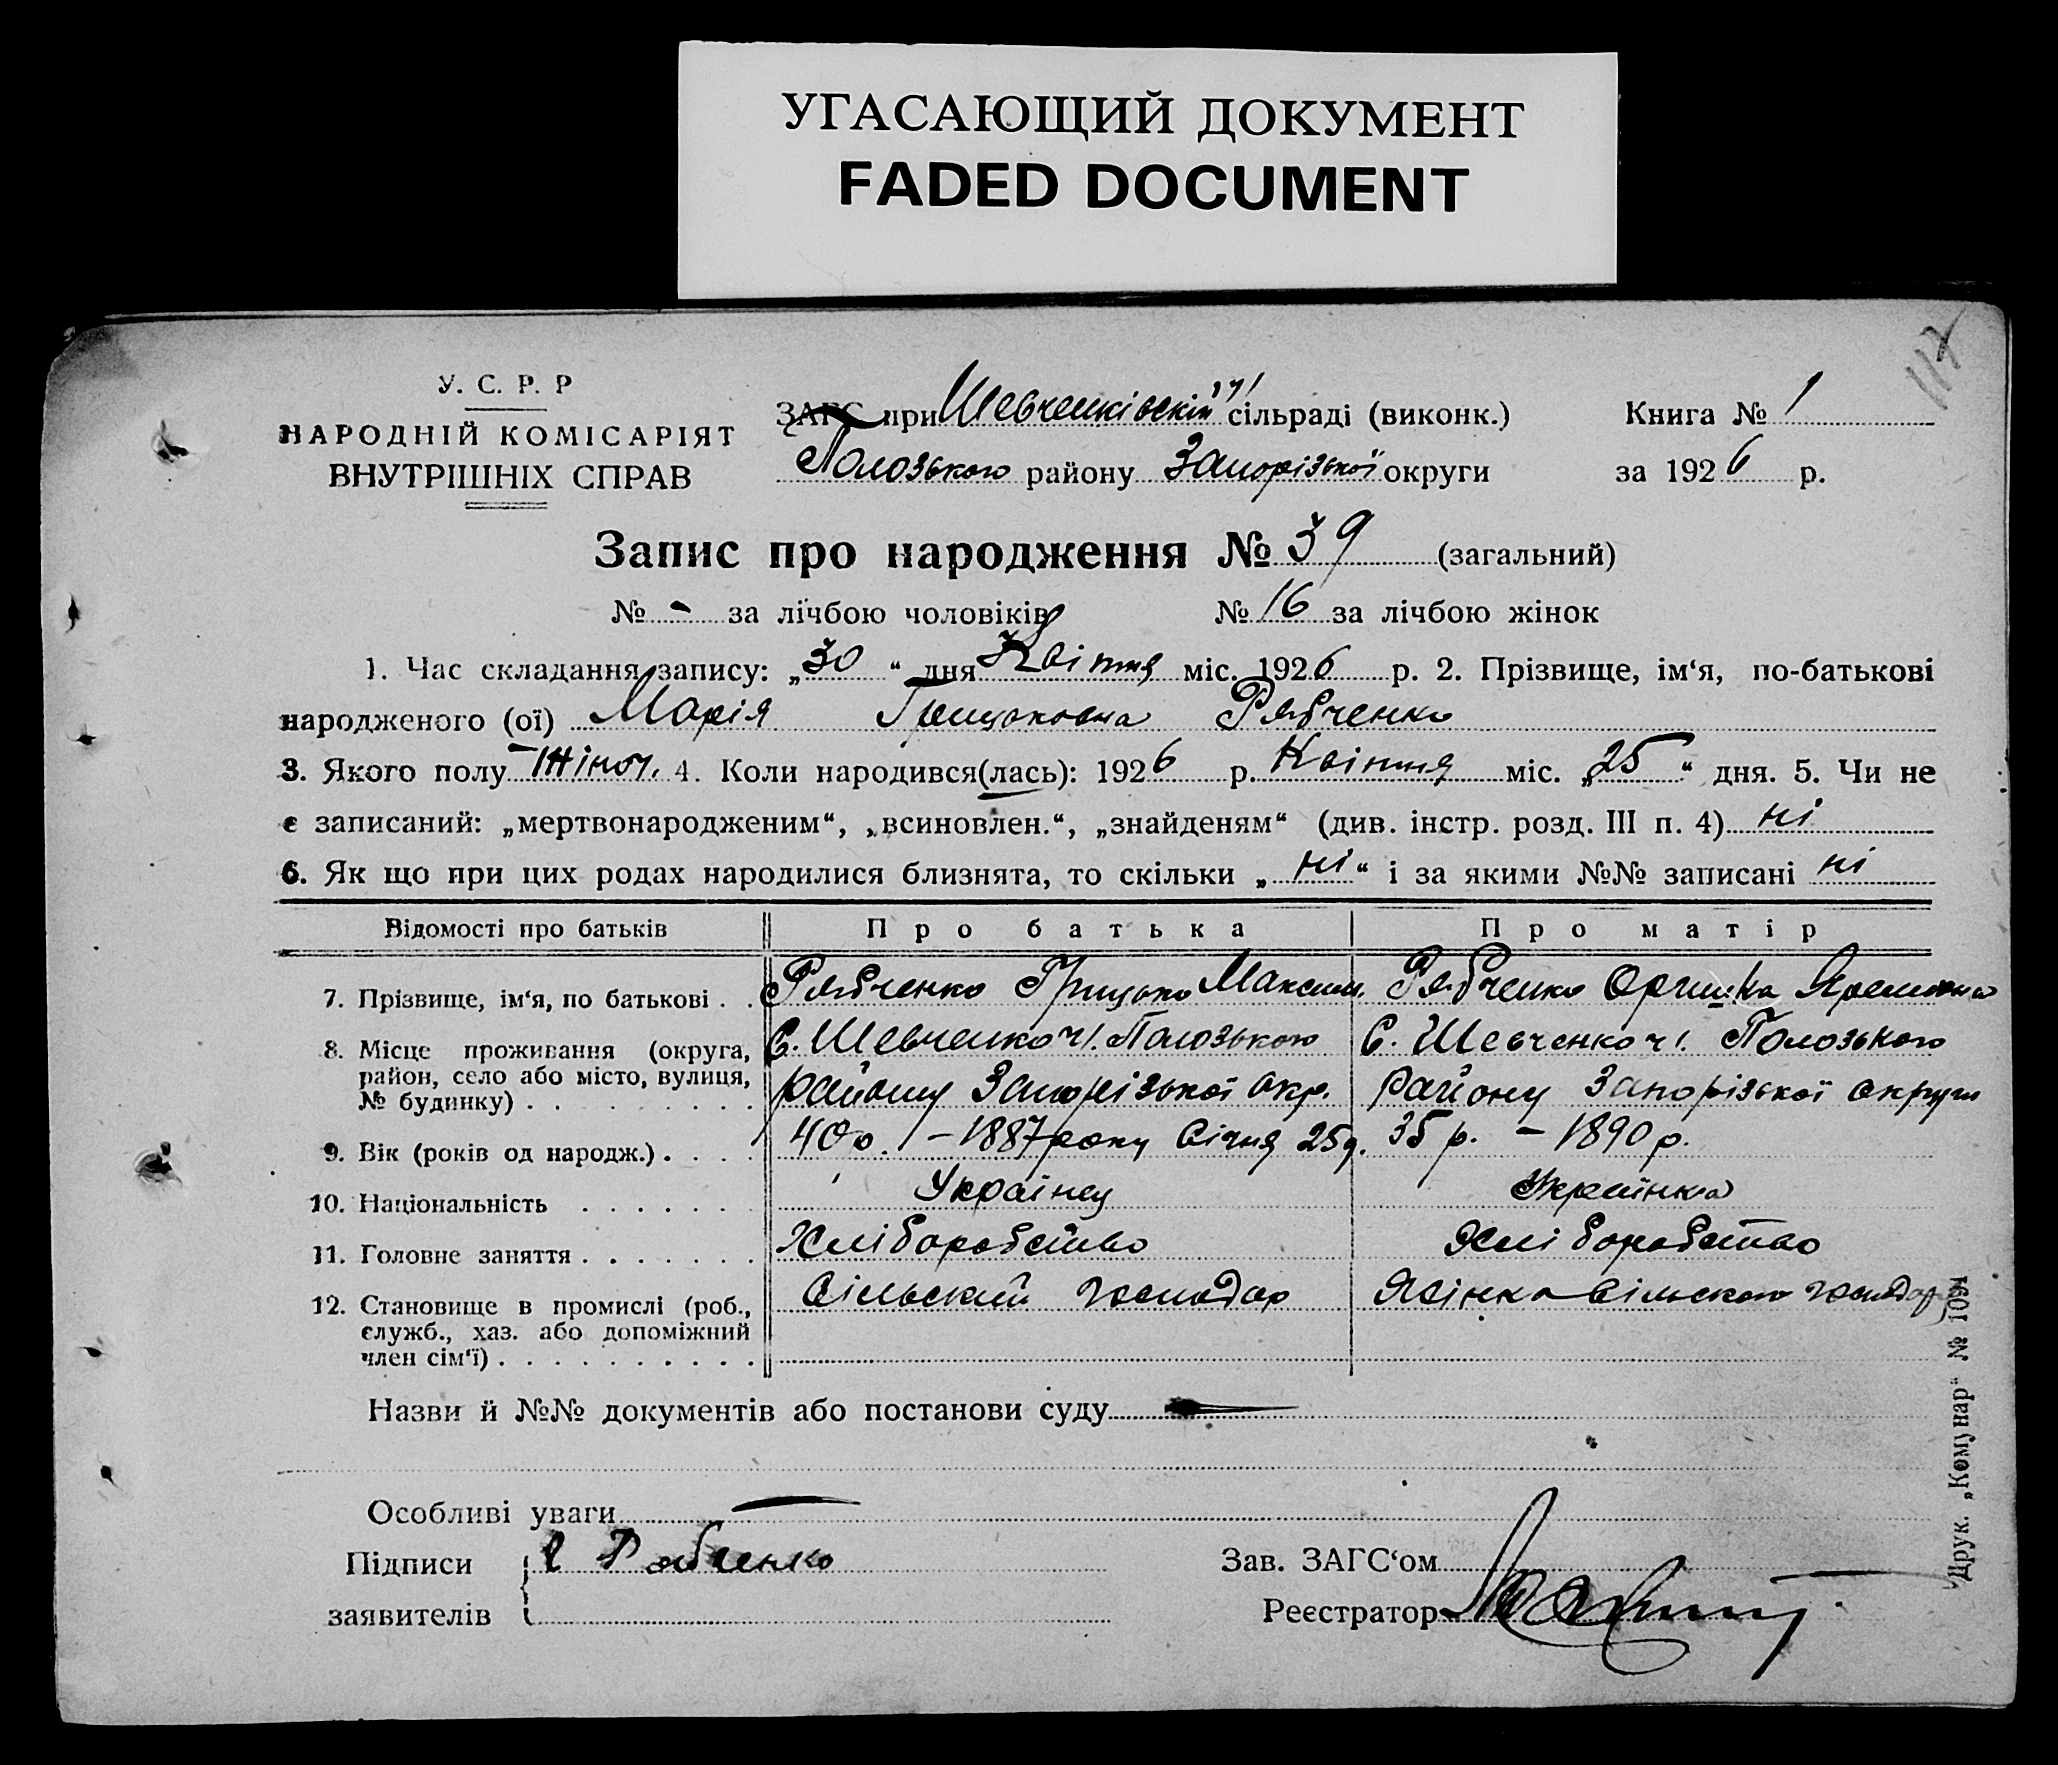 УГАСАЮЩИЙ ДОКУМЕНТ
FADED DOCUMENT
117
У. С. Р. Р
НАРОДНІЙ КОМІСАРІЯТ
ВНУТРІШНІХ СПРАВ
ЗАГС при Шевченківскій ч/ сільраді (виконк.) Книга № 1
Полозького району Запорізької округи за 1926 р.
Запис про народження № 39 (загальний)
№ - за лічбою чоловіків № 16 за лічбою жінок
1. Час складання запису: „30“ дня Квітня міс. 1926 р. 2. Прізвище, ім‘я, по-батькові
народженого (ої) Марія Грицьковна Рябченко
3. Якого полу Жіноч. 4. Коли народився(лась): 1926 р. Квітня міс. „25“ дня. 5. Чи не
є записаний: „мертвонародженим“, „всиновлен.“, „знайденям“ (див. інстр. розд. III п. 4) ні
6. Як що при цих родах народилися близнята, то скільки „ні“ і за якими №№ записані ні
Відомості про батьків Про батька Про матір
7. Прізвище, ім‘я, по батькові . . Рябченко Грицько Максим. Рябченко Оришка
8. Місце проживання (округа, район, село або місто, вулиця, № будинку) . . . . . . . . . С. Шевченко ч/. Полозького району Запорізької окр. С. Шевченко ч/. Полозького району Запорізької округи
9. Вік (років од народж.) . . . . 40 р. – 1887 року Січня 25 д. 35 р. – 1890 р.
10. Національність . . . . . . . Українец Українка
11. Головне заняття . . . . . . . Хліборобство Хліборобство
12. Становище в промислі (роб., служб., хаз. або допоміжний член сім‘ї) . . . . . . . . . . . Сільский господар Жінка сільского господар
Назви й №№ документів або постанови суду
Особливі уваги
Підписи Рябченко Зав. ЗАГС‘ом
заявителів Реєстратор
Друк. „Комунар“ № 1091